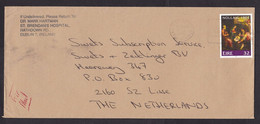 If Undelivered, Please Return To:
DR. MARK HARTMAN
ST. BRENDAN'S HOSPITAL,
RATHDOWN RD.
DUBLIN 7, IRELAND.
EIRE 32
Swets Subscription Service
Swets + Zeitlinger BV
Heereweg 347
P.O. Box 830
2160 SZ Lisse
THE NETHERLANDS